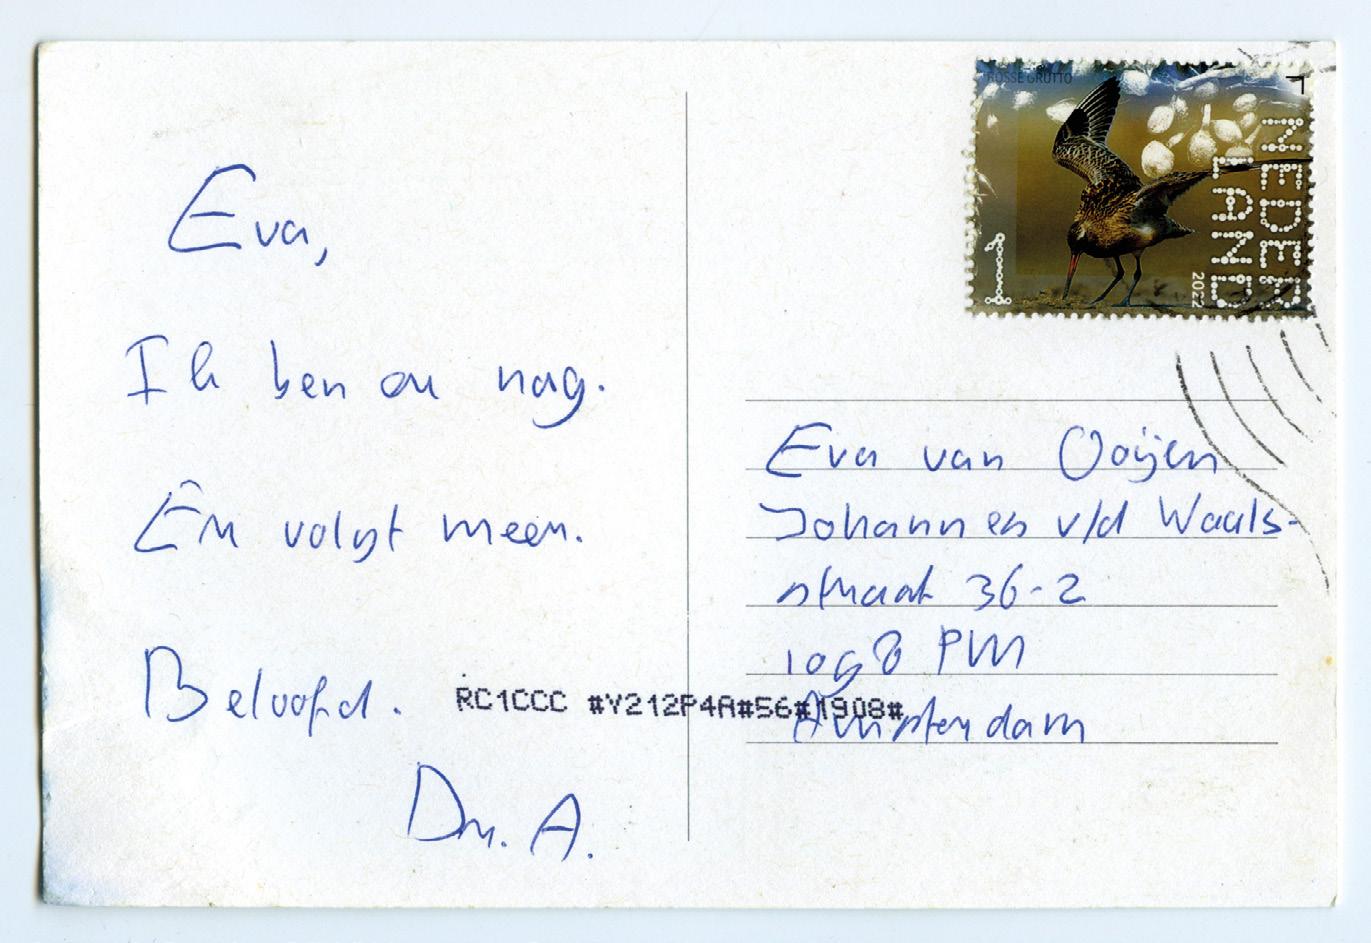 Eva,
Ik ben er nog.
Er volgt meer.
Beloofd.
Dr. A.
ROSSE GRUTTO
NEDERLAND
2022
1
Eva van Ooijen
Johannes v/d Waals-
straat 36-2
1098 PM
Amsterdam
RC1CCC #Y212P4A#56#1908#